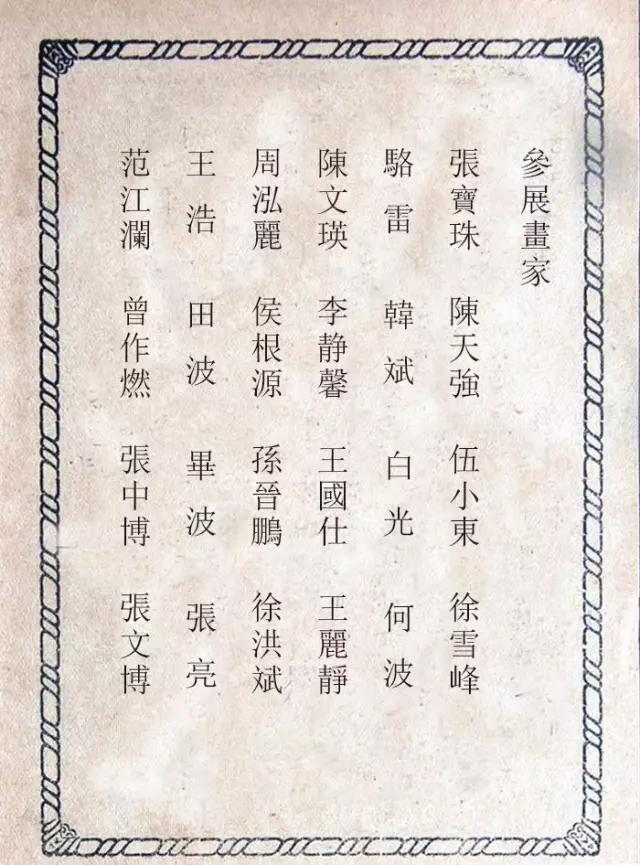 參展畫家
張寶珠 陳天強 伍小東 徐雪峰
駱雷 韓斌 白光 何波
陳文瑛 李静馨 王國仕 王麗靜
周泓麗 侯根源 孫晉鵬 徐洪斌
王浩 田波 畢波 張亮
范江瀾 曾作燃 張中博 張文博